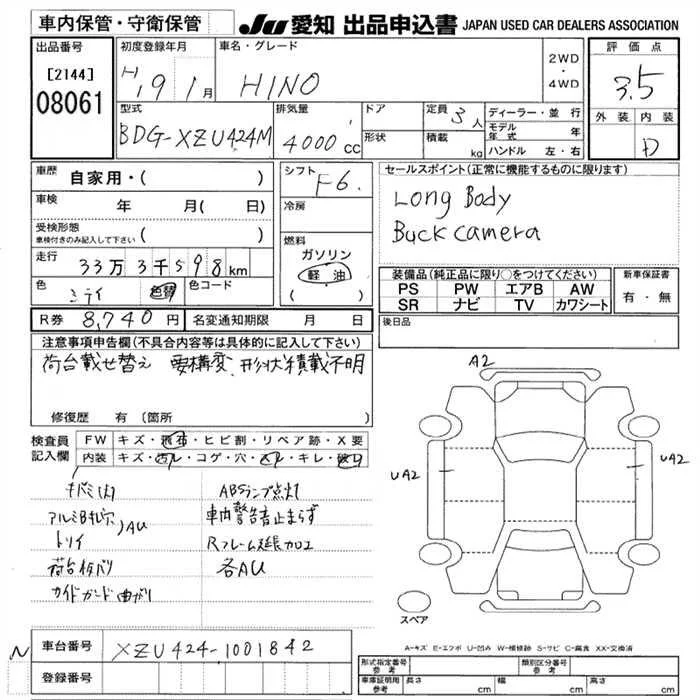 車内保管・守衛保管
JU 愛知 出品申込書 JAPAN USED CAR DEALERS ASSOCIATION
出品番号
[2144]
08061
初度登録年月
H19 1月
車名・グレード
HINO
2WD
・
4WD
評価点
3.5
外装 内装
D
型式
BDG-XZU424M
排気量
4000cc
ドア
形状
定員 3人
積載 kg
ディーラー・並行
モデル年式 年
ハンドル 左・右
車歴
自家用・( )
車検
年 月( 日)
受検形態
車検付きのみ記入して下さい ( )
走行
33万3千598km
色
色替
色コード
シフト
F6.
冷房
燃料
ガソリン
軽油
( )
セールスポイント(正常に機能するものに限ります)
Long Body
Buck camera
装備品(純正品に限り○をつけてください)
PS PW エアB AW
SR ナビ TV カワシート
新車保証書
有・無
R券 8,740円
名変通知期限 月 日
後日品
注意事項申告欄(不具合内容等は具体的に記入して下さい)
荷台載せ替え 要構変 形状積載不明
修復歴 有〔箇所 〕
検査員
記入欄
FW キズ・飛石・ヒビ割・リペア跡・X要
内装 キズ・汚レ・コゲ・穴・スレ・キレ・破り
ABSランプ点灯
車内警告音止まらず
Rフレーム延長加工
各AU
AU
ガイドガード曲がり
A2
UA2
UA2
スペア
A-キズ E-エクボ U-凹み W-補修跡 S-サビ C-腐食 XX-交換済
N
車台番号
XZU424-1001842
登録番号
形式指定番号
参考
類別区分番号
参考
車庫証明用
参考
長さ cm
幅 cm
高さ cm